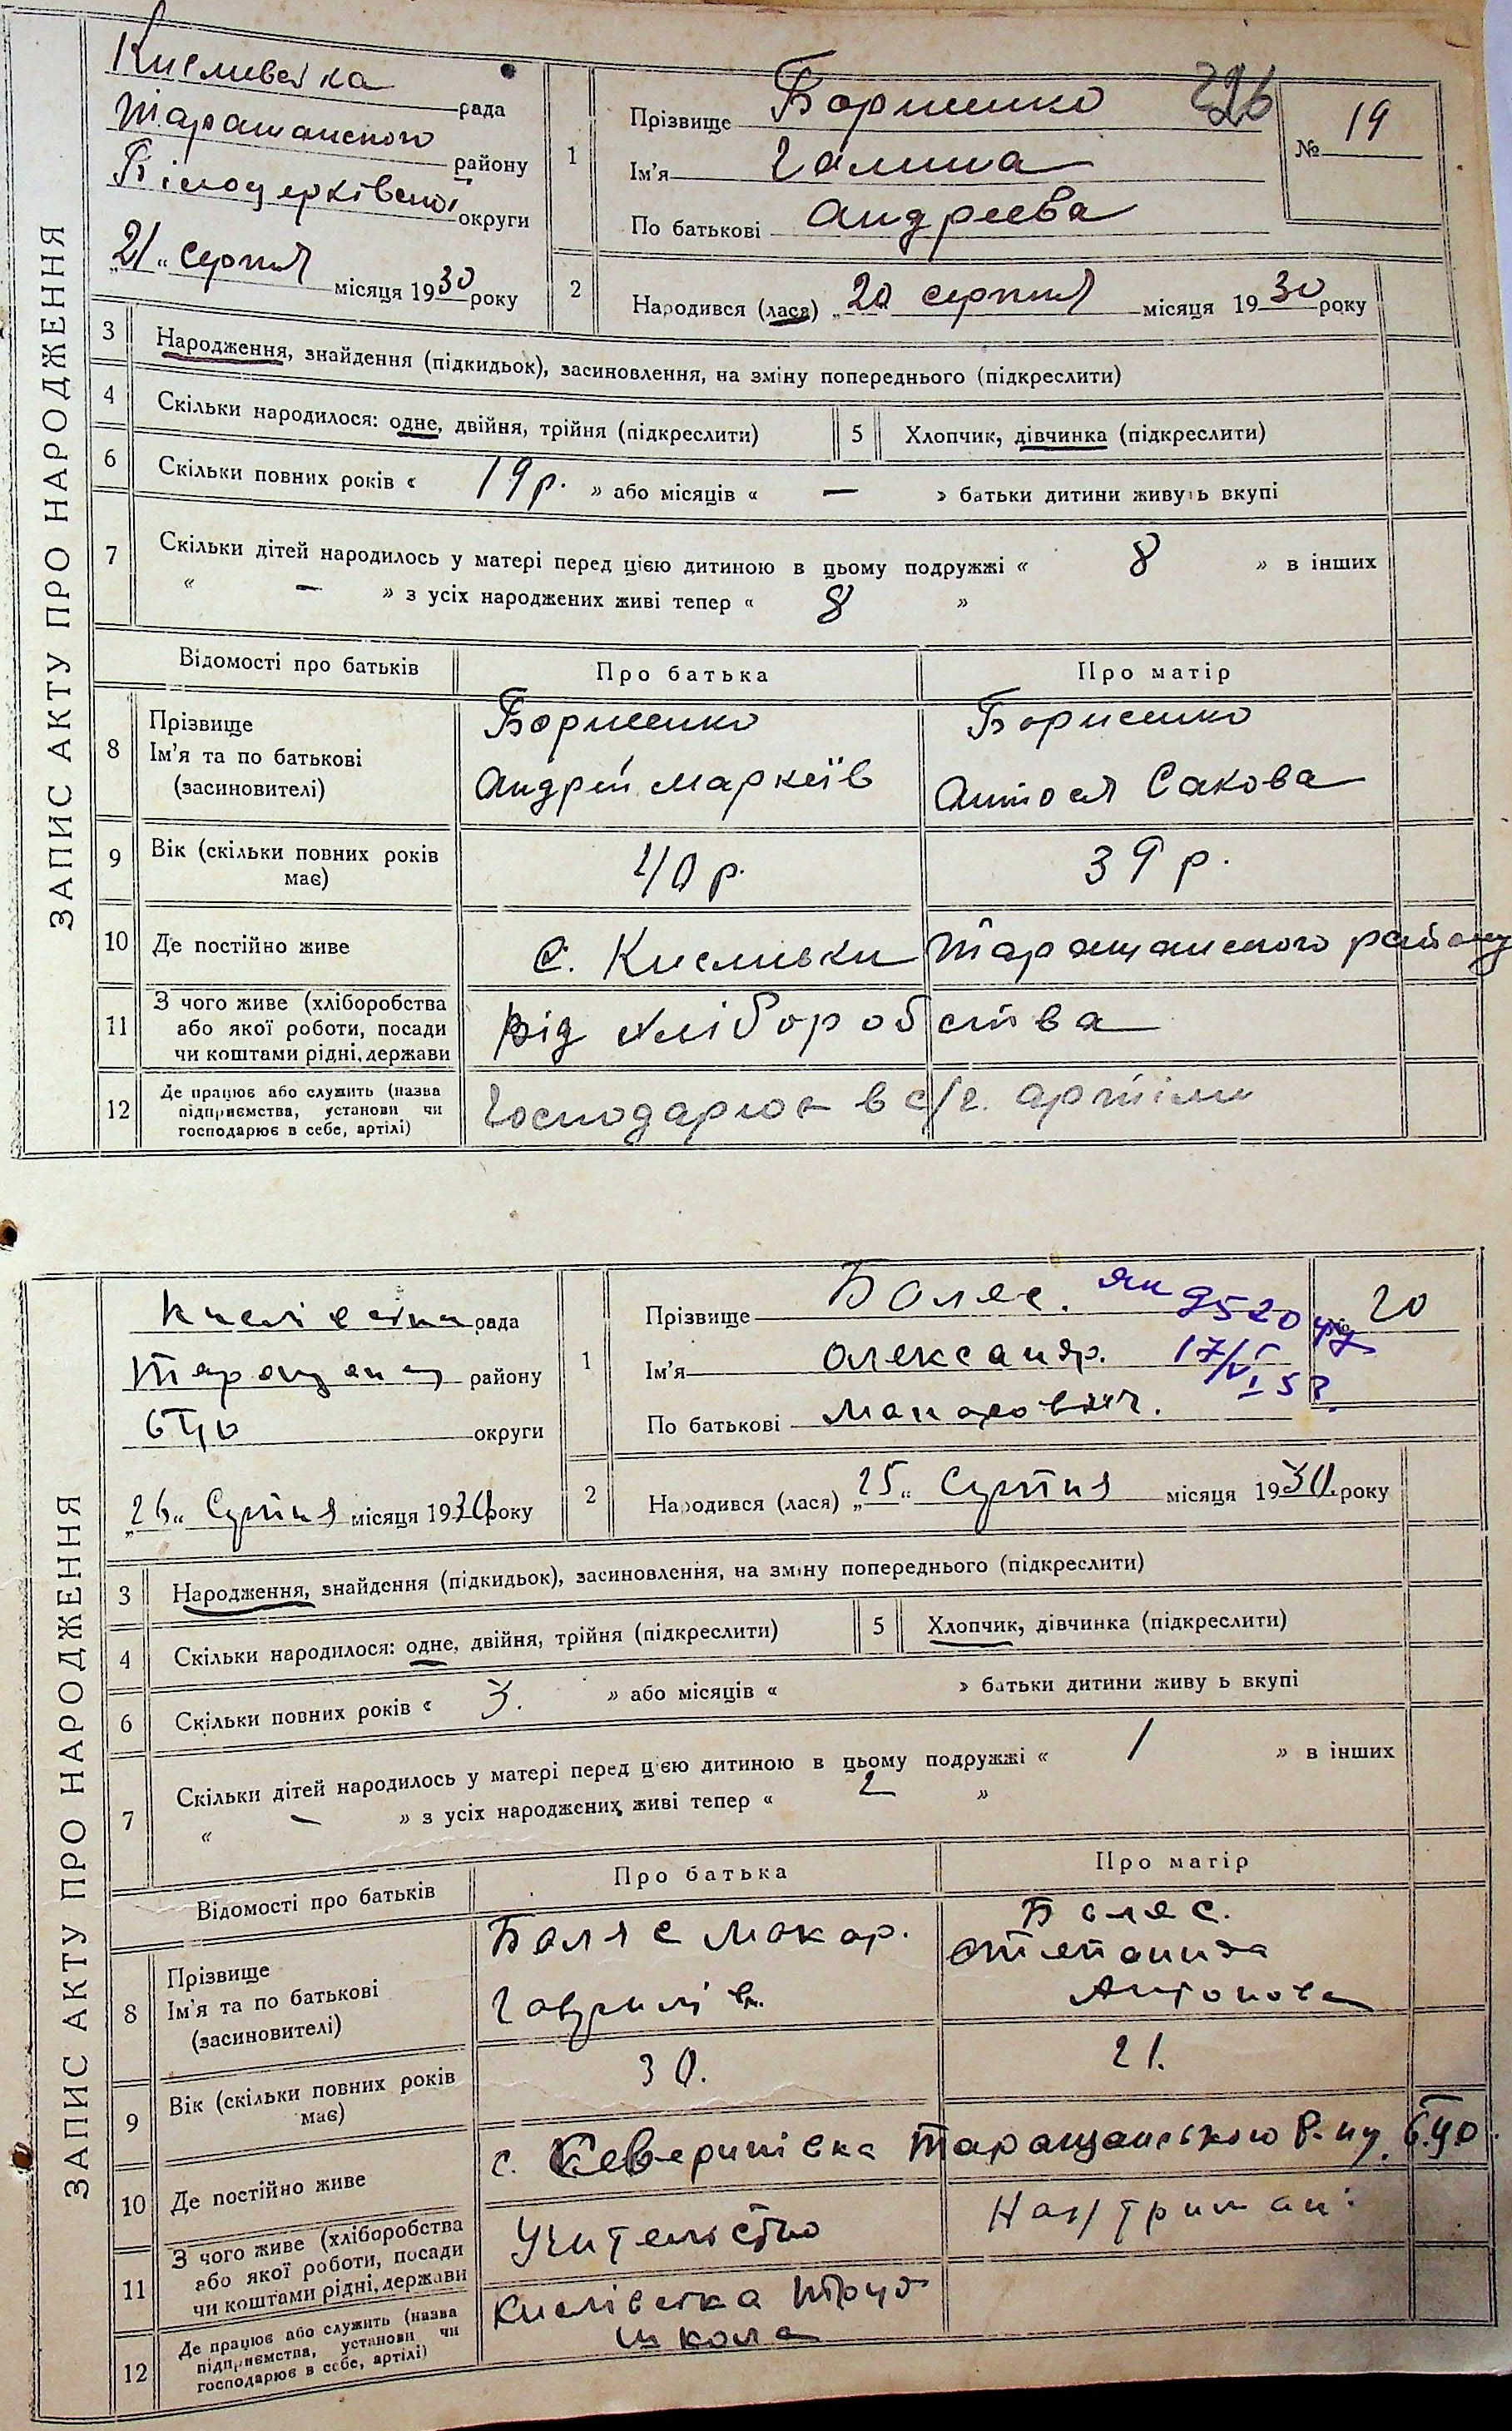 ЗАПИС АКТУ ПРО НАРОДЖЕННЯ
Кисливська рада
Таращанського району
Білоцерківської округи
„21“ серпня місяця 1930 року
326
№ 19
1 Прізвище Борисенко
Ім'я Галина
По батькові Андреева
2 Народився (лася) „20“ серпня місяця 1930 року
3 Народження, знайдення (підкидьок), засиновлення, на зміну попереднього (підкреслити)
4 Скільки народилося: одне, двійня, трійня (підкреслити)
5 Хлопчик, дівчинка (підкреслити)
6 Скільки повних років « 19 р. » або місяців « — » батьки дитини живуть вкупі
7 Скільки дітей народилось у матері перед цією дитиною в цьому подружжі « 8 » в інших
« — » з усіх народжених живі тепер « 8 »
Відомості про батьків Про батька Про матір
8 Прізвище
Ім'я та по батькові
(засиновителі)
Борисенко
Андрей Маркеїв
Борисенко
Антося Сакова
9 Вік (скільки повних років
має)
40 р. 39 р.
10 Де постійно живе с. Кисливки Таращанского району
11 З чого живе (хліборобства
або якої роботи, посади
чи коштами рідні, держави
від хліборобства
12 Де працює або служить (назва
підприємства, установи чи
господарює в себе, артілі)
Господарює в с/г. артіли
ЗАПИС АКТУ ПРО НАРОДЖЕННЯ
рада
району
БЦо округи
„26“ Серпня місяця 1930 року
№ 20
1 Прізвище Боляс.
Ім'я Олександр.
По батькові Макарович.
2 Народився (лася) „25“ Серпня місяця 1930. року
3 Народження, знайдення (підкидьок), засиновлення, на зміну попереднього (підкреслити)
4 Скільки народилося: одне, двійня, трійня (підкреслити)
5 Хлопчик, дівчинка (підкреслити)
6 Скільки повних років « 3. » або місяців « » батьки дитини живу ь вкупі
7 Скільки дітей народилось у матері перед цією дитиною в цьому подружжі « 1 » в інших
« — » з усіх народжених живі тепер « 2 »
Відомості про батьків Про батька Про матір
8 Прізвище
Ім'я та по батькові
(засиновителі)
Боляс Макар.
Гаврилів
Боляс.
Степанида
Антонова
9 Вік (скільки повних років
має)
30. 21.
10 Де постійно живе с. Северинівка Таращанського Р-ну. БЦо.
11 З чого живе (хліборобства
або якої роботи, посади
чи коштами рідні, держави
Учительство
12 Де працює або служить (назва
підприємства, установи чи
господарює в себе, артілі)
Кислівська труд
школа